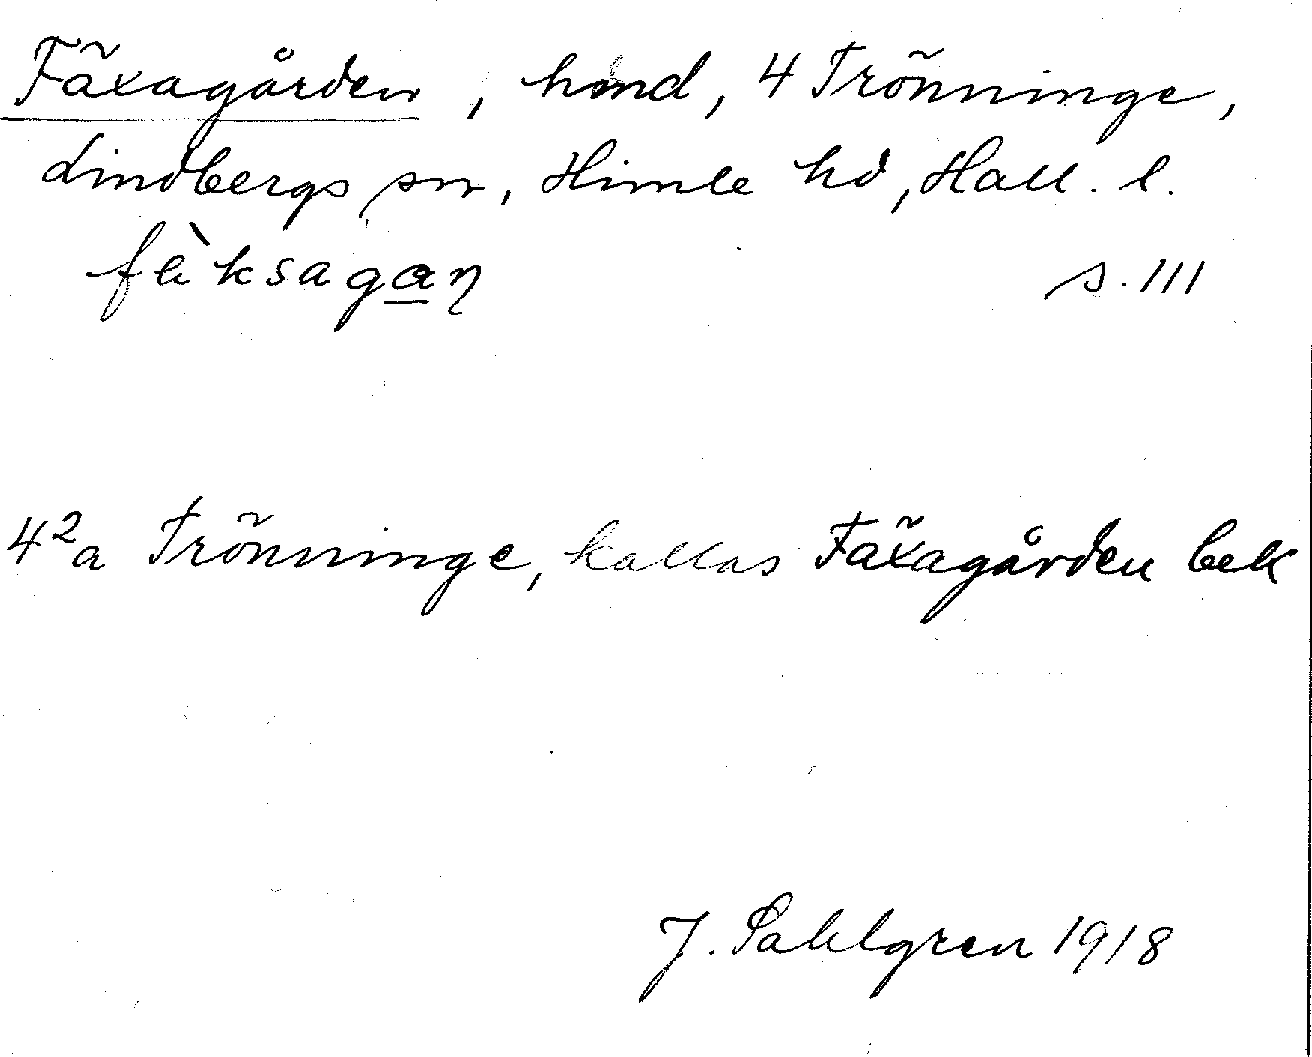 Fäxagården, hmd, 4 Trönninge,
Lindbergs sn, Himle hd, Hall. l.
fὲksagan s. 111
4²a Trönninge, kallas Fäxagården bek
J. Sahlgren 1918